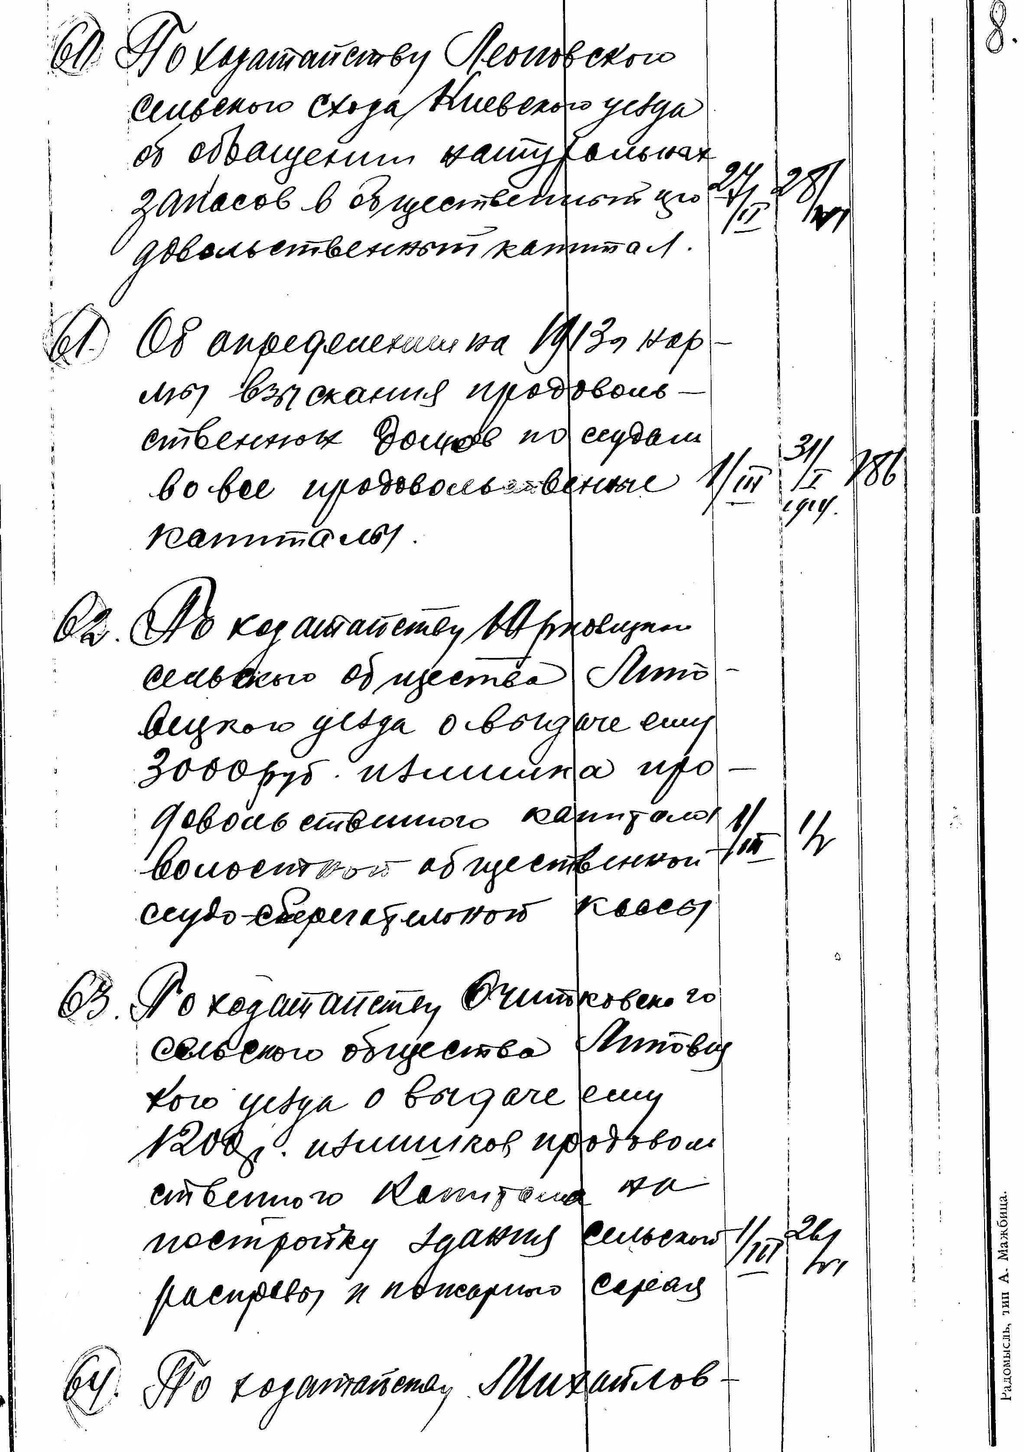 8.
60. По ходатайству Леоновского
сельского схода Киевского уезда
об обращении натуральных
запасов в общественный про
довольственный капитал.
24/II 28/VI
61. Об определении на 1913 г нор-
мы взыскания продоволь-
ственных долгов по ссудам
во все продовольственные
капиталы.
1/III 31/I 1914. 186
62. По ходатайству Юрковецкого
сельского общества Липо-
вецкого уезда о выдаче ему
3000 руб. излишка про-
довольственного капитала
волостной общественной
ссудо-сберегательной кассы
1/III
63. По ходатайству Очитковского
сельского общества Липовец
кого уезда о выдаче ему
1200 р. излишков продоволь
ственного капитала на
постройку здания сельской
расправы и пожарного сарая
1/III 26/VI
64. По ходатайству Михайлов-
Радомысль, тип А. Мажбица.